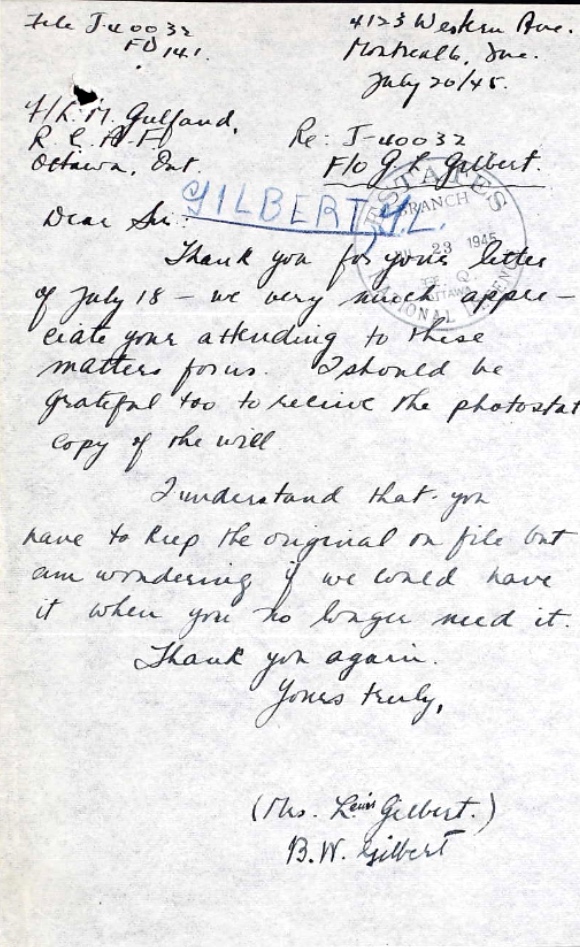 File J-40032
FD 141.
4123 Western Ave.
Montreal 6, Que.
July 20/45.
F/L. M. Gulfand,
R. C. A. F.
Ottawa, Ont.
Re: J-40032
F/O G. L. Gilbert.
GILBERT G.L.
ESTATES
BRANCH
23 1945
OTTAWA
NATIONAL DEFENCE
Dear Sir:
Thank you for your letter
of July 18 - we very much appre-
ciate your attending to these
matters for us. I should be
grateful too to receive the photostat
copy of the will
I understand that you
have to keep the original on file but
am wondering if we could have
it when you no longer need it.
Thank you again.
Yours truly,
(Mrs. Lewis Gilbert.)
B.W. Gilbert